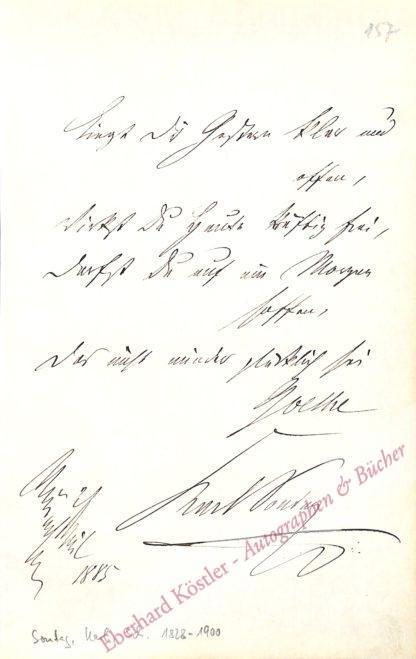 157
Liegt dir Gestern klar und
offen,
Wirkst du heute kräftig frei,
Darfst du auf ein Morgen
hoffen,
Das nicht minder glücklich sei
Goethe
Karl Sontag
1885
Eberhard Köstler - Autographen & Bücher
Sontag, Karl 1828-1900